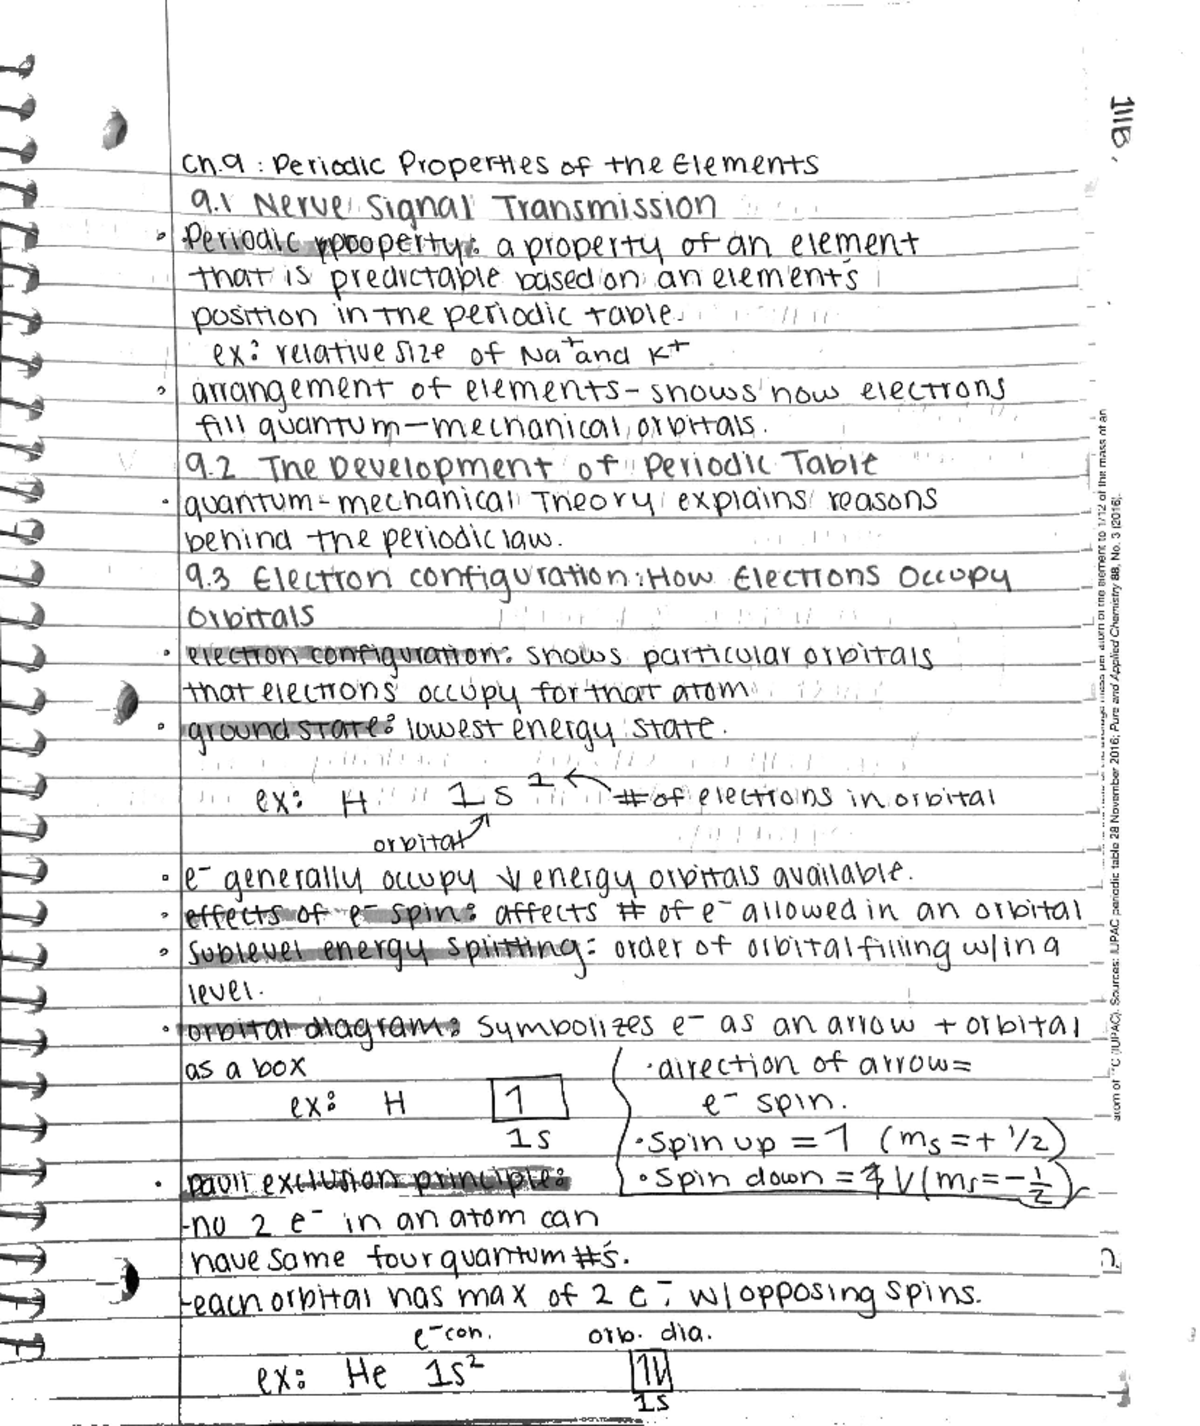 Ch.9 : Periodic Properties of the Elements
9.1 Nerve Signal Transmission
• Periodic ppooperty: a property of an element
that is predictable based on an element's
position in the periodic table.
ex: relative size of Na⁺ and K⁺
• arrangement of elements - shows how electrons
fill quantum-mechanical orbitals.
9.2 The Development of Periodic Table
• quantum-mechanical Theory explains reasons
behind the periodic law.
9.3 Electron configuration: How Electrons Occupy
Orbitals
• electron configuration: shows particular orbitals
that electrons occupy for that atom
• ground state: lowest energy state.
ex: H 1s¹ ← # of electrons in orbital
orbital
• e⁻ generally occupy ↓ energy orbitals available.
• effects of e⁻ spin: affects # of e⁻ allowed in an orbital
• Sublevel energy splitting: order of orbital filling w/in a
level.
• orbital diagram: symbolizes e⁻ as an arrow + orbital
as a box
ex: H 1
1s
• direction of arrow =
e⁻ spin.
• Spin up = 1 (ms = + 1/2)
• Spin down = V (ms = - 1/2)
• pauli exclusion principle:
- no 2 e⁻ in an atom can
have same four quantum #'s.
- each orbital has max of 2 e⁻, w/ opposing spins.
e⁻ con. orb. dia.
ex: He 1s² 1V
1s
111B.
atom of ¹²C (IUPAC). Sources: IUPAC periodic table 28 November 2016; Pure and Applied Chemistry 88, No. 3 (2016).
element to 1/12 of the mass of an